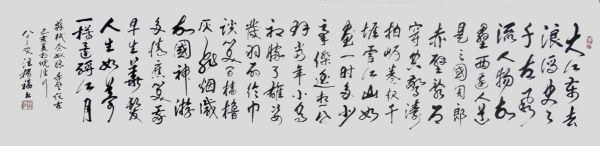 大江东去
浪淘尽
千古风
流人物故
垒西边人道
是三国周郎
赤壁乱石
穿空惊涛
拍岸卷起千
堆雪江山如
画一时多少
豪杰遥想公
瑾当年小乔
初嫁了雄姿
英发羽扇纶巾
谈笑间樯橹
灰飞烟灭
故国神游
多情应笑我
早生华发
人生如梦
一樽还酹江月
苏轼念奴娇赤壁怀古